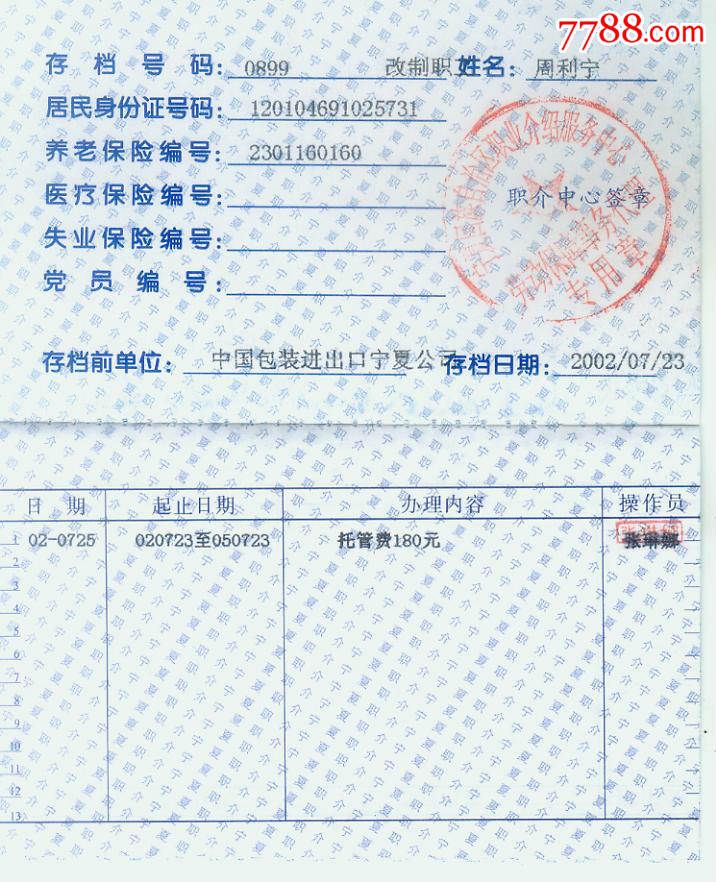 7788.com
存档号码: 0899 改制职工 姓名: 周利宁
居民身份证号码: 120104691025731
养老保险编号: 2301160160
职业介绍服务中心
医疗保险编号:
职介中心签章
失业保险编号:
劳动保障事务代理
专用章
党员编号:
存档前单位: 中国包装进出口宁夏公司 存档日期: 2002/07/23
日期 起止日期 办理内容 操作员
1 02-0725 020723至050723 托管费180元
2
3
4
5
6
7
8
9
10
11
12
13